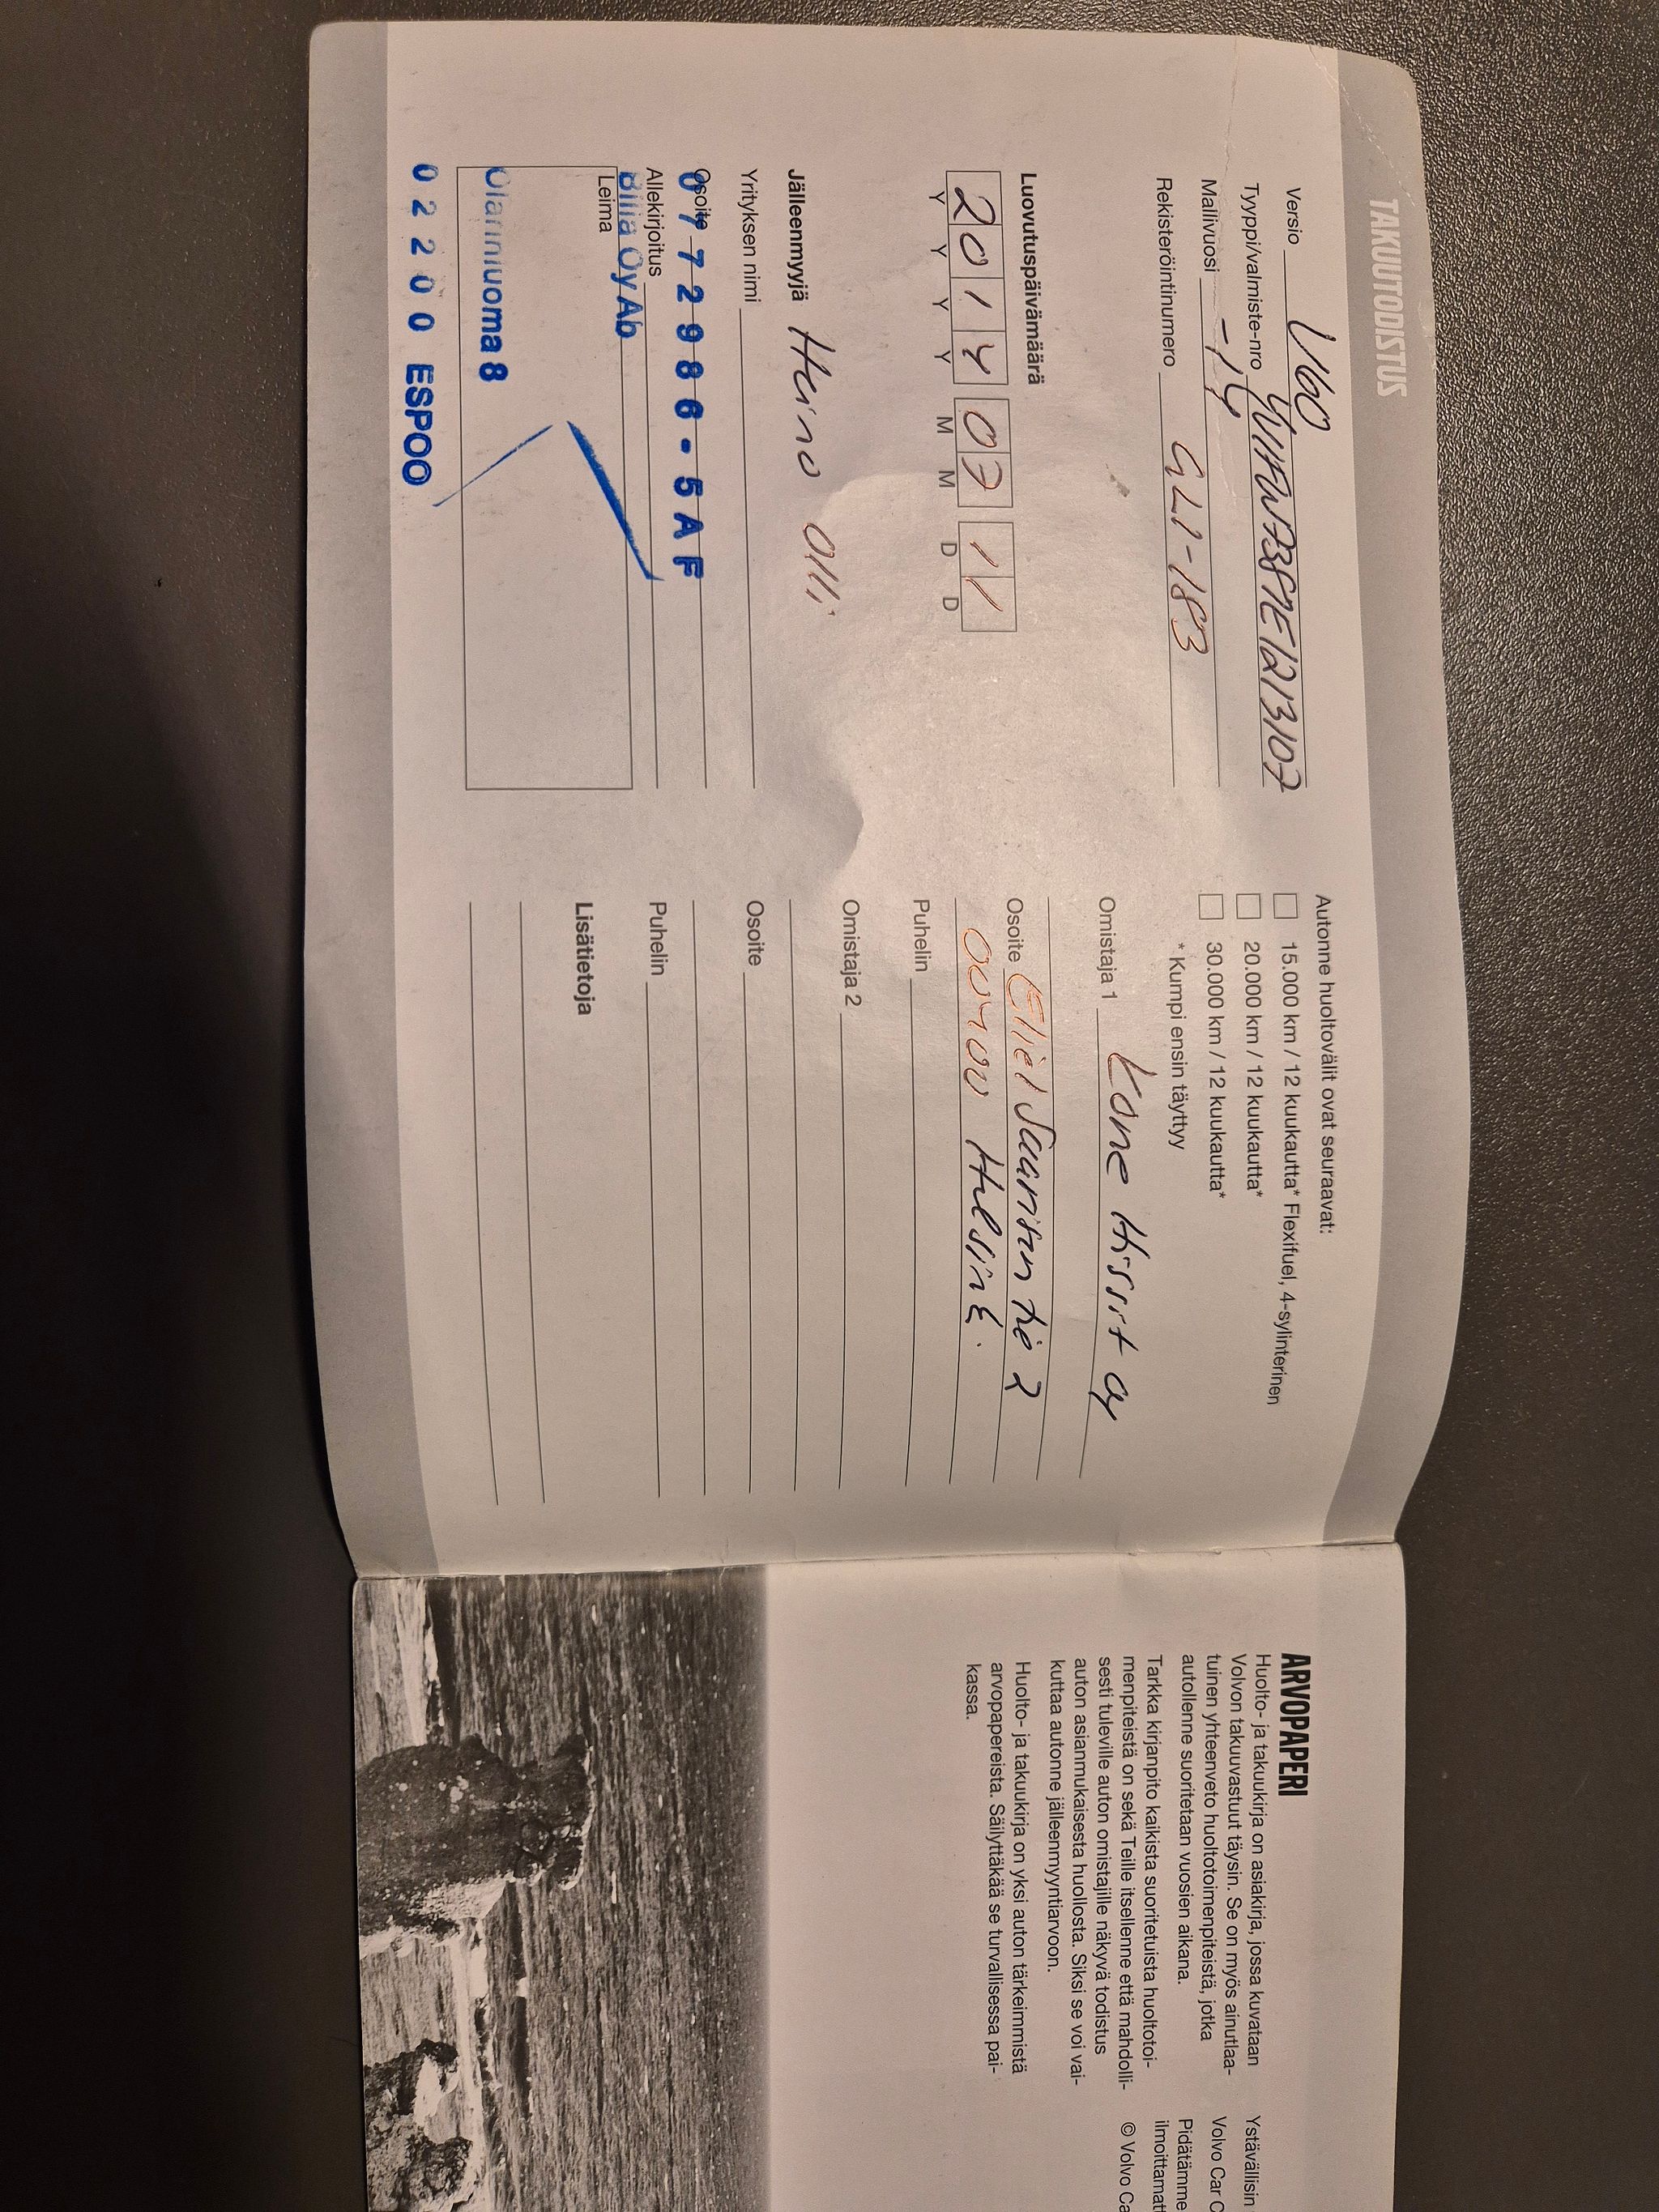 TAKUUTODISTUS
Versio V60
Tyyppi/valmiste-nro YV1FW73S7E1213107
Mallivuosi -14
Rekisteröintinumero GLI-183
Luovutuspäivämäärä
2014 07 11
Y Y Y Y M M D D
Jälleenmyyjä Heino Olli
Yrityksen nimi
Osoite
0772986-5AF
Allekirjoitus
Bilia Oy Ab
Leima
Olarinluoma 8
02200 ESPOO
Autonne huoltovälit ovat seuraavat:
15.000 km / 12 kuukautta* Flexifuel, 4-sylinterinen
20.000 km / 12 kuukautta*
30.000 km / 12 kuukautta*
* Kumpi ensin täyttyy
Omistaja 1 Kone Hissit Oy
Osoite Eliel Saarisen tie 2
00400 Helsinki
Puhelin
Omistaja 2
Osoite
Puhelin
Lisätietoja
ARVOPAPERI
Huolto- ja takuukirja on asiakirja, jossa kuvataan
Volvon takuuvastuut täysin. Se on myös ainutlaa-
tuinen yhteenveto huoltotoimenpiteistä, jotka
autollenne suoritetaan vuosien aikana.
Tarkka kirjanpito kaikista suoritetuista huoltotoi-
menpiteistä on sekä Teille itsellenne että mahdolli-
sesti tuleville auton omistajille näkyvä todistus
auton asianmukaisesta huollosta. Siksi se voi vai-
kuttaa autonne jälleenmyyntiarvoon.
Huolto- ja takuukirja on yksi auton tärkeimmistä
arvopapereista. Säilyttäkää se turvallisessa pai-
kassa.
Ystävällisin
Volvo Car C
Pidätämme
ilmoittamat
© Volvo Ca